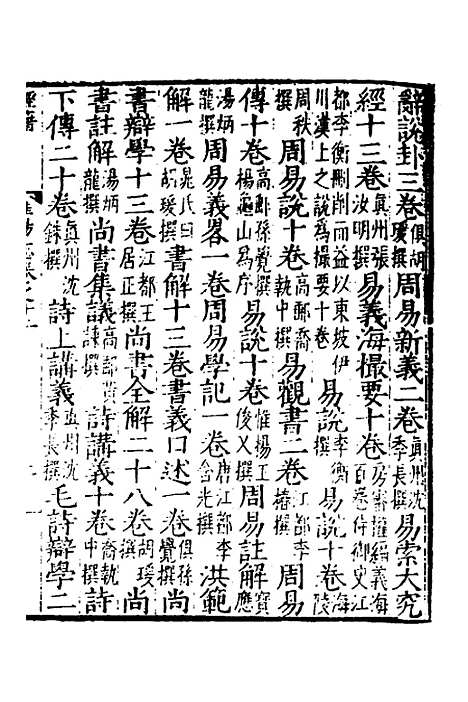 辭說卦三卷俱胡瑗撰周易新義二卷真州沈季長撰易索大究
經十三卷真州張汝明撰易義海撮要十卷房審權編義海百卷侍御史江
都李衡刪削而益以東坡伊川漢上之說為撮要十卷易說李衡撰易說十卷海陵
周秋撰周易說十卷高郵喬執中撰易觀書二卷江都李椿撰周易
傳十卷高郵孫覺撰楊龜山為序易說十卷惟揚王俊乂撰周易註解寶應
湯炳龍撰周易義畧一卷周易學記一卷唐江都李含光撰洪範
解一卷晁氏曰胡瑗撰書解十三卷書義口述一卷俱孫覺撰尚
書辯學十三卷江都王居正撰尚書全解二十八卷胡瑗撰尚
書註解湯炳龍撰尚書集議高郵黃撰詩講義十卷喬執中撰詩
下傳二十卷真州沈銖撰詩上講義真州沈季長撰毛詩辯學二